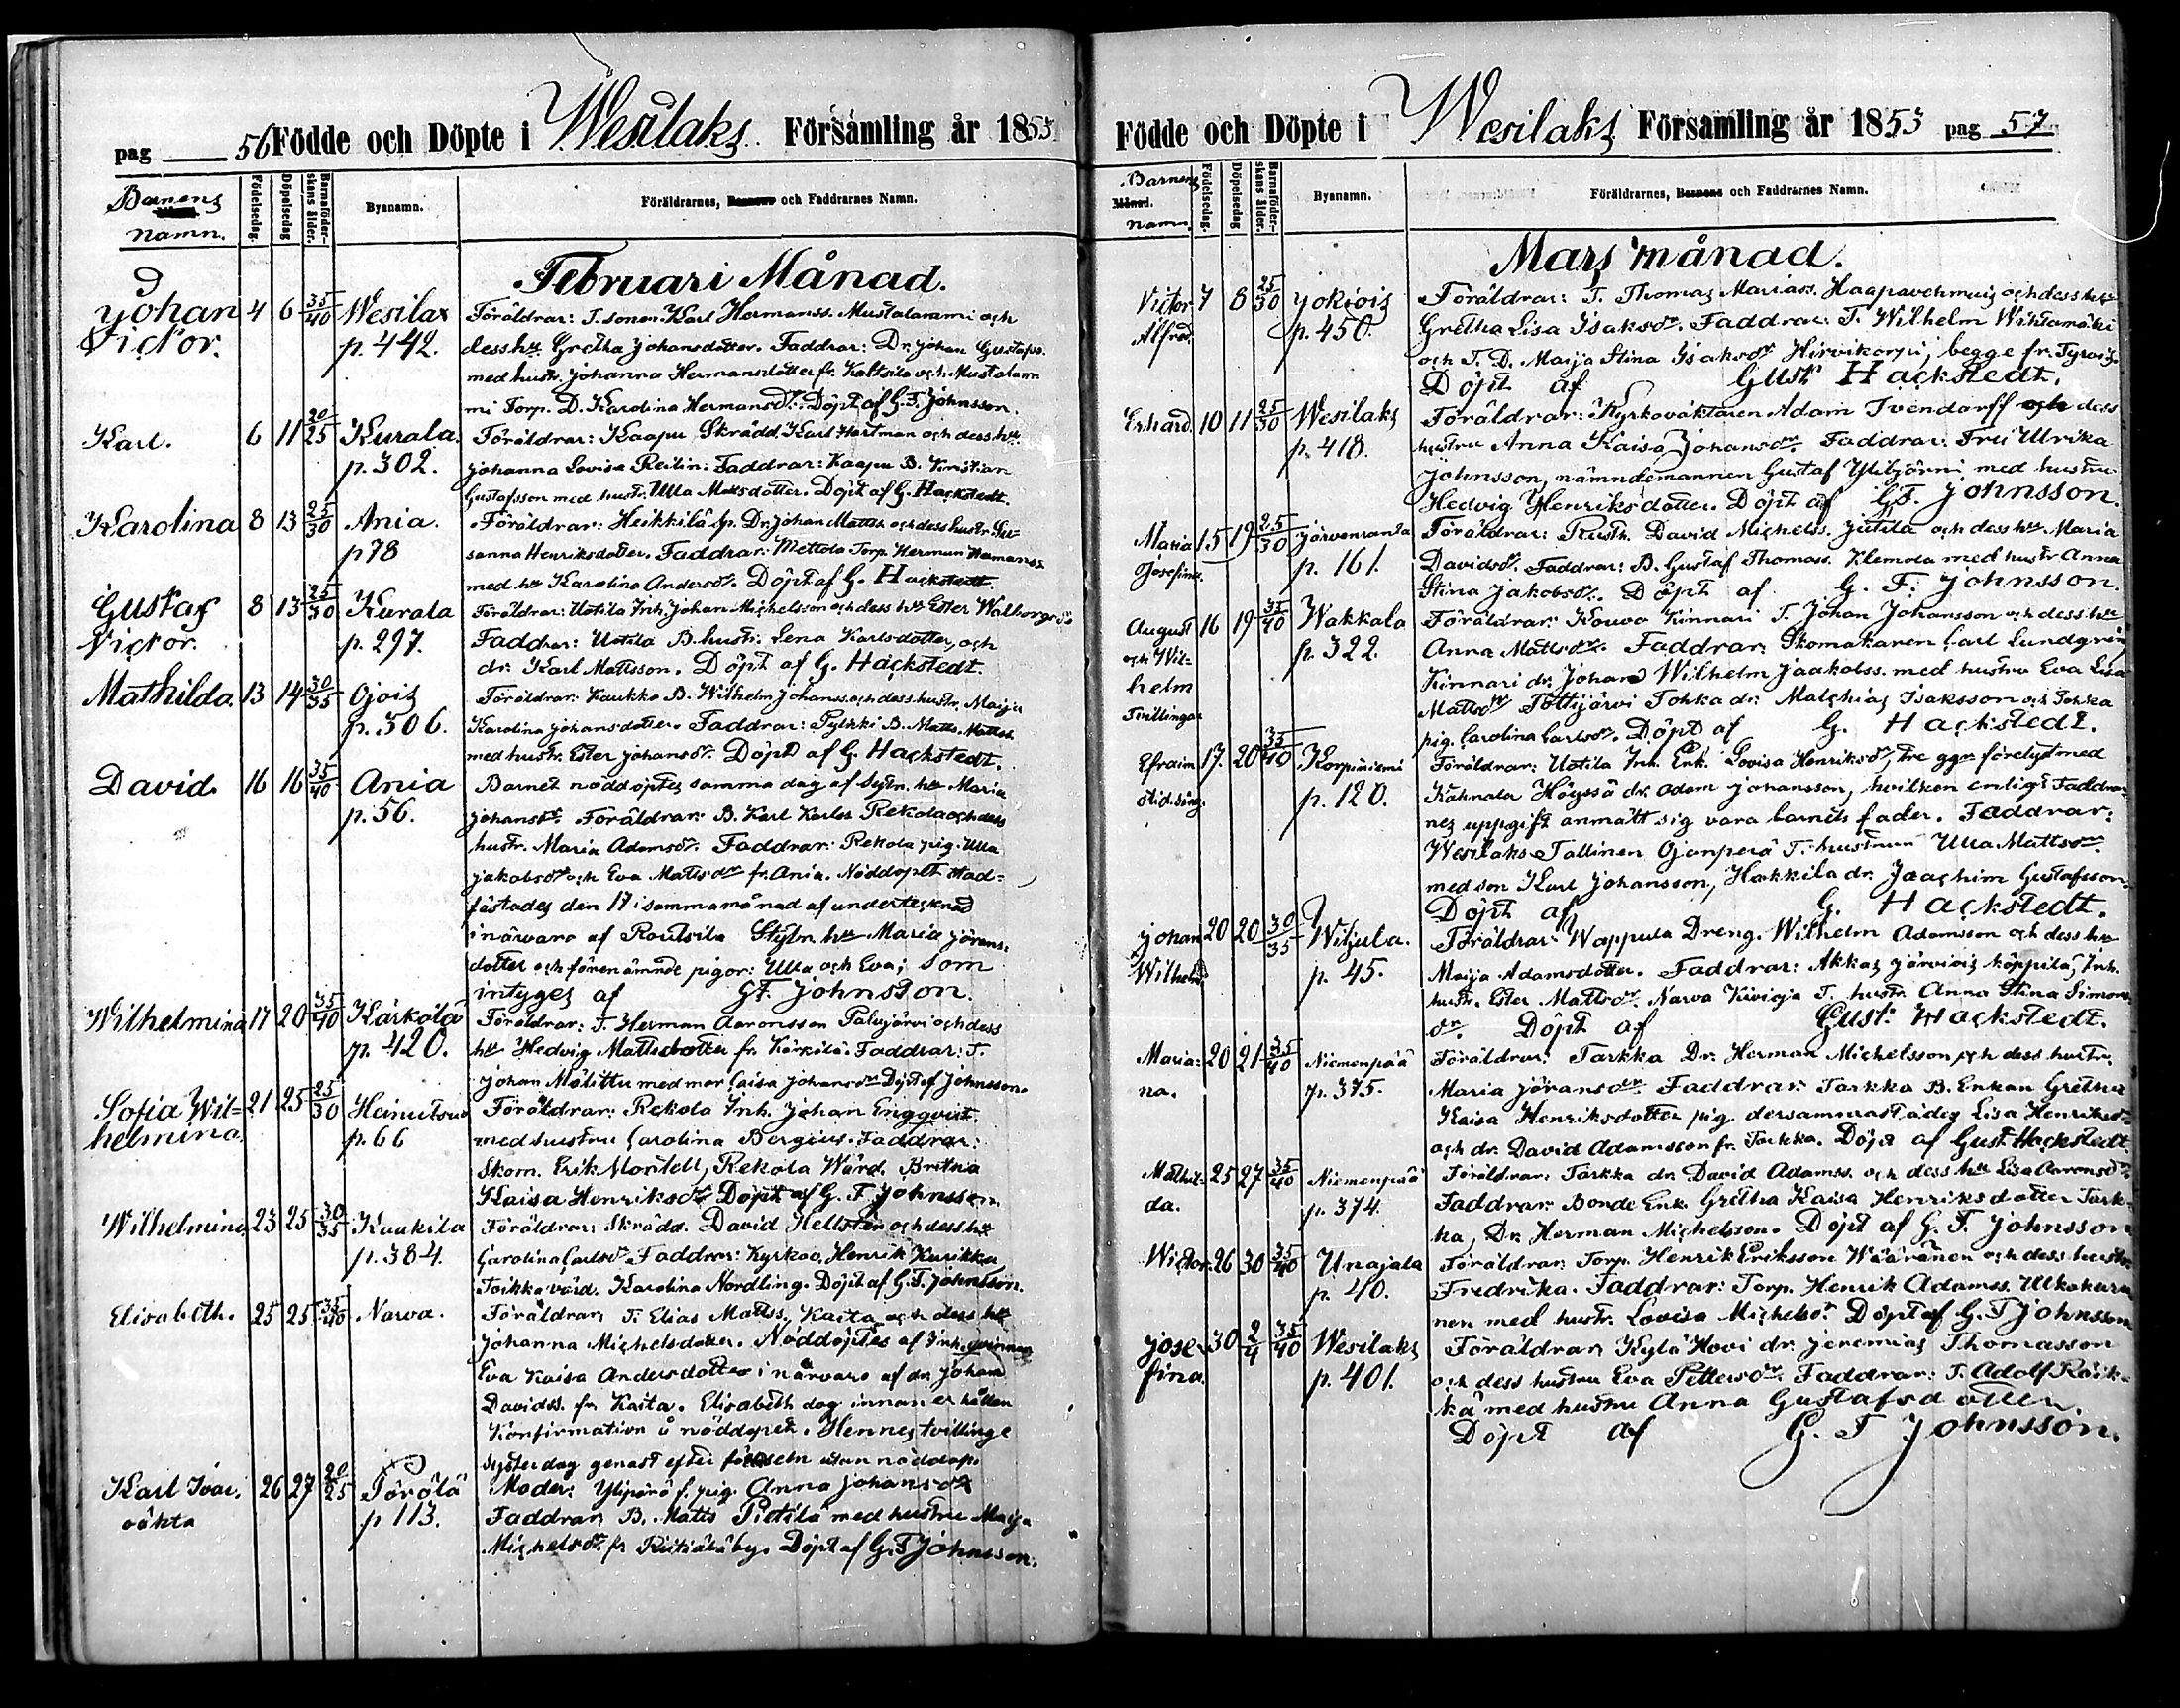 pag 56 Födde och Döpte i Wesilaks Församling år 1853
Barnens Namn.
Födelsedag.
Döpelsedag
Barnaföderskans ålder.
Byanamn.
Föräldrarnes, Barnens och Faddrarnes Namn.
Februari Månad.
Johan 4 6 35/40 Wesilax Föräldrar: T. sonen Karl Hermanss. Mustalammi och
Victor. p. 442. dess hu Gretha Johansdotter. Faddrar: Dr. Johan Gustafss.
med hustr. Johanna Hermansdotter fr. Kaltsila och Mustalam
mi Torp. D. Karolina Hermansdr. Döpt af G. F. Johnsson.
Karl. 6 11 20/25 Kurala. Föräldrar: Kaapu Skrädd. Karl Hartman och dess hu
p. 302. Johanna Lovisa Reilin. Faddrar: Kaapu B. Kristian
Gustafsson med hustr. Ulla Mattsdotter. Döpt af G. Hackstedt.
Karolina 8 13 25/30 Ania. Föräldrar: Heikkilä Sp. Dr. Johan Mattss. och dess hustr. Su
p 78 sanna Henriksdotter. Faddrar: Mettola Torp. Herman Hermanss.
med hu Karolina Andersdr. Döpt af G. Hackstedt.
Gustaf 8 13 25/30 Kurala Föräldrar: Uotila Inh. Johan Michelsson och dess hu Ester Walborgsdr
Victor. p. 297. Faddrar: Uotila B. hustr. Lena Karlsdotter, och
dr. Karl Mattsson. Döpt af G. Hackstedt.
Mathilda. 13 14 30/35 Ojois Föräldrar: Kaukko B. Wilhelm Johanss. och dess hustr. Maija
p. 306. Karolina Johansdotter. Faddrar: Pyhäki B. Matts Mattss.
med hustr. Ester Johansdr. Döpt af G. Hackstedt.
David. 16 16 35/40 Ania Barnet nöddöptes samma dag af Sytn. hu Maria
p. 56. Johansdr. Föräldrar: B. Karl Karlss. Rekola och dess
hustr. Maria Adamsdr. Faddrar: Rekola pig. Ulla
Jakobsdr och Eva Mattsdr fr. Ania. Nöddopet stad=
fästades den 17 i samma månad af undertecknad
i närvaro af Routsila Stytn. hu Maria Jörans=
dotter och förenämnde pigor: Ulla och Eva; som
intyges af G. F. Johnsson.
Wilhelmina 17 20 35/40 Kärkölä Föräldrar: T. Herman Aaronsson Palvjärvi och dess
p. 420. hu Hedvig Mattsdotter fr. Kärkilä. Faddrar: T.
Johan Mölittu med mor Caisa Johansdr Döpt af Johnsson.
Sofia Wil= 21 25 25/30 Heinutsuo Föräldrar: Rekola Inh. Johan Engqvist
helmina. p. 66 med hustru Carolina Bergius. Faddrar:
Skom. Erik Montell, Rekola Wärd. Brittna
Kaisa Henriksdr Döpt af G. F. Johnsson
Wilhelmina 23 25 30/35 Kaukila Föräldrar: Skrädd. David Hellsten och dess hu
p. 384. Carolina Carlsdr. Faddrar: Kyrkov. Henrik Kurikka
Toikka värd. Karolina Nordling. Döpt af G. F. Johnsson.
Elisabeth. 25 25 35/40 Narva. Föräldrar: T. Elias Mattss. Kaita och dess hu
Johanna Michelsdotter. Nöddöptes af Inh. qvinnan
Eva Kaisa Andersdotter i närvaro af dr. Johan
Davidss. fr. Kaita. Elisabeth dog innan erhållen
Konfirmation å nöddopet. Hennes tvillinge
syster dog genast efter födseln utan nöddop.
Karl Ivar. 26 27 20/25 Törölä Moder: Ylipärä f. pig. Anna Johansdr
oäkta p 113. Faddrar: B. Matts Pietilä med hustru Maija
Michelsdr. fr. Riitiälä by. Döpt af G. F Johnsson.
Födde och Döpte i Wesilaks Församling år 1853 pag 57
Barnens Månad. namn.
Födelsedag.
Döpelsedag
Barnaföderskans ålder.
Byanamn.
Föräldrarnes, Barnens och Faddrarnes Namn.
Mars månad.
Victor 7 8 25/30 Jokiois Föräldrar: T. Thomas Mariass. Haapavehmais och dess hu
Alfred. p. 450. Gretha Lisa Isaksdr. Faddrar: T. Wilhelm Wihlamäki
och T. D. Maija Stina Isaksdr Hirvikorpi, begge fr. Tyrvis.
Döpt af Gust. Hackstedt.
Erhard. 10 11 25/30 Wesilaks Föräldrar: Kyrkoväktaren Adam Tvendorff och dess
p. 418. hustru Anna Kaisa Johansdr. Faddrar: Fru Ulrika
Johnsson, nämndemannen Gustaf Ylibjörni med hustru
Hedvig Henriksdotter. Döpt af G F. Johnsson.
Maria 15 19 25/30 Järvenranta Föräldrar: Rusth. David Michelss. Jutila och dess hu Maria
Josefina. p. 161. Davidsdr. Faddrar: B. Gustaf Thomass. Klemola med hustr Anna
Stina Jakobsdr. Döpt af G. F. Johnsson.
August 16 19 35/40 Wakkala Föräldrar: Kouvo Kinnari T. Johan Johansson och dess hu
och Wil= p. 322. Anna Mattsdr. Faddrar: Skomakaren Carl Lundgrén,
helm Kinnari dr. Johan Wilhelm Jaakobss. med hustru Eva Lisa
Tvillingar Mattsdr Tottijärvi Tohka dr. Malchias Isaksson och Tohka
pig. Carolina Carlsdr. Döpt af G. Hackstedt.
Efraim 17. 20 35/40 Korpiniemi Föräldrar: Uotila Inh. Enk. Lovisa Henriksdr, tre ggr förelyst med
p. 120. Kahnala Höyssä dr. Adam Johansson, hvilken enligt Faddrar=
nes uppgift anmält sig vara barnets fader. Faddrar:
Wesilaks Tallinen Ojanperä T. hustrun Ulla Mattsdr.
med son Karl Johansson, Hakkila dr. Joachim Gustafsson.
Döpt af G. Hackstedt.
Johan 20 20 30/35 Wiljula. Föräldrar: Wappula Dreng. Wilhelm Adamsson och dess hu
Wilhelm p. 45. Maija Adamsdotter. Faddrar: Akkas Järviois Köppilä, Inh.
hustr. Ester Mattsdr. Narva Kivioja T. hustr. Anna Stina Simons
dr. Döpt af Gust. Hackstedt.
Maria= 20 21 35/40 Niemenpää Föräldrar: Tarkka Dr. Herman Michelsson och dess hustr.
na. p. 375. Maria Jöransdr Faddrar: Tarkka B. Enkan Gretha
Kaisa Henriksdotter pig. dersammastädes Lisa Henriksdr
och dr. David Adamsson fr. Tarkka. Döpt af Gust. Hackstedt.
Mathil= 25 27 35/40 Niemenpää Föräldrar: Tarkka dr. David Adamss. och dess hu Lisa Aaronsdr.
da. p. 374. Faddrar: Bonde Enk. Gretha Kaisa Henriksdotter Tark=
ka, Dr. Herman Michelsson. Döpt af G. F. Johnsson
Wictor 26 30 35/40 Unajala Föräldrar: Torp. Henrik Eriksson Wääränen och dess hustru
p. 40. Fredrika. Faddrar: Torp. Henrik Adamss. Ulkokuru
nen med hustr. Lovisa Michelsdr Döpt af G. F Johnsson
Jose= 30 2/4 35/40 Wesilaks Föräldrar: Kylä Hovi dr. Jeremias Thomasson
fina. p. 401. och dess hustru Eva Pettersdr. Faddrar: T. Adolf Räik=
kä med hustru Anna Gustafsdotter.
Döpt af G. F Johnsson.